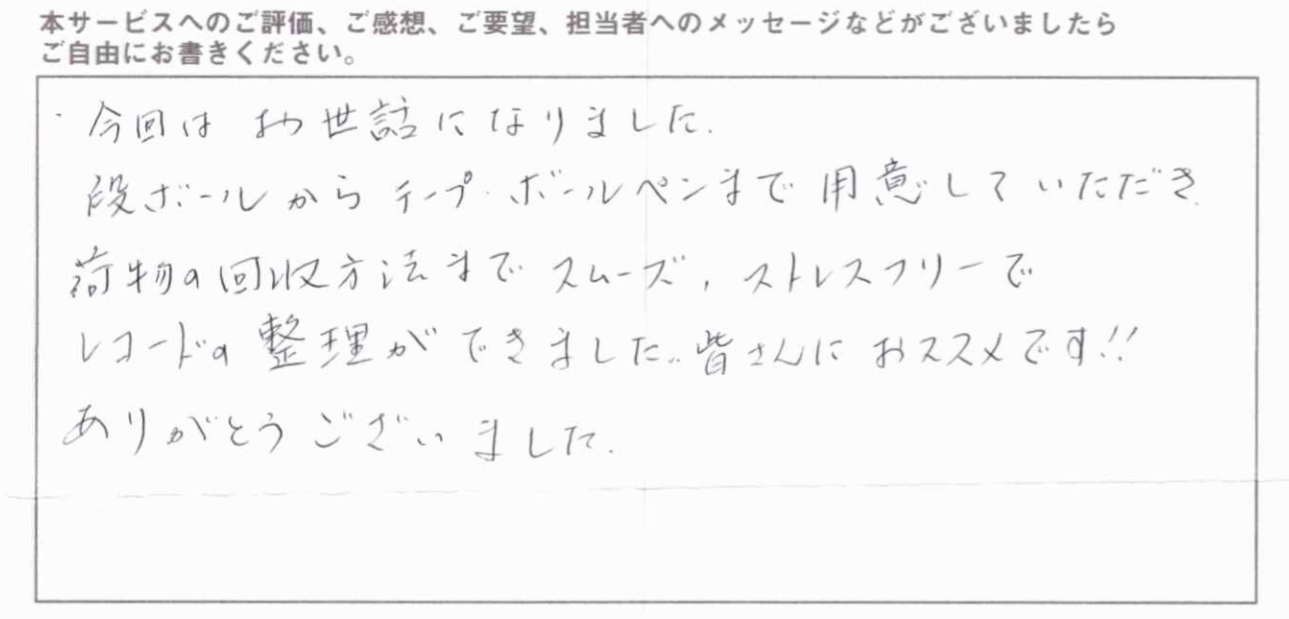 本サービスへのご評価、ご感想、ご要望、担当者へのメッセージなどがございましたら
ご自由にお書きください。
・今回はお世話になりました.
段ボールからテープ・ボールペンまで用意していただき
荷物の回収方法までスムーズ,ストレスフリーで
レコードの整理ができました..皆さんにおススメです!!
ありがとうございました.